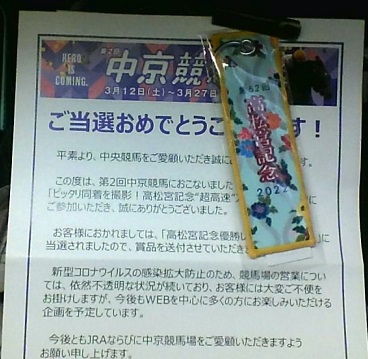 HERO
IS
COMING.
第2回
中京競
3月12日(土)～3月27日
ご当選おめでとうご す!
平素より、中央競馬をご愛顧いただき誠に す。
この度は、第2回中京競馬におこないました
「ピッタリ同着を撮影!高松宮記念"超高速"
ご参加いただき、誠にありがとうございました。
お客様におかれましては、「高松宮記念優勝レ に
当選されましたので、賞品を送付させていただき
新型コロナウイルスの感染拡大防止のため、競馬場の営業につい
ては、依然不透明な状況が続いており、お客様には大変ご不便を
お掛けしますが、今後もWEBを中心に多くの方にお楽しみいただける
企画を予定しています。
今後ともJRAならびに中京競馬場をご愛顧いただきますよう
お願い申し上げます。
52回
高松宮記念
2022